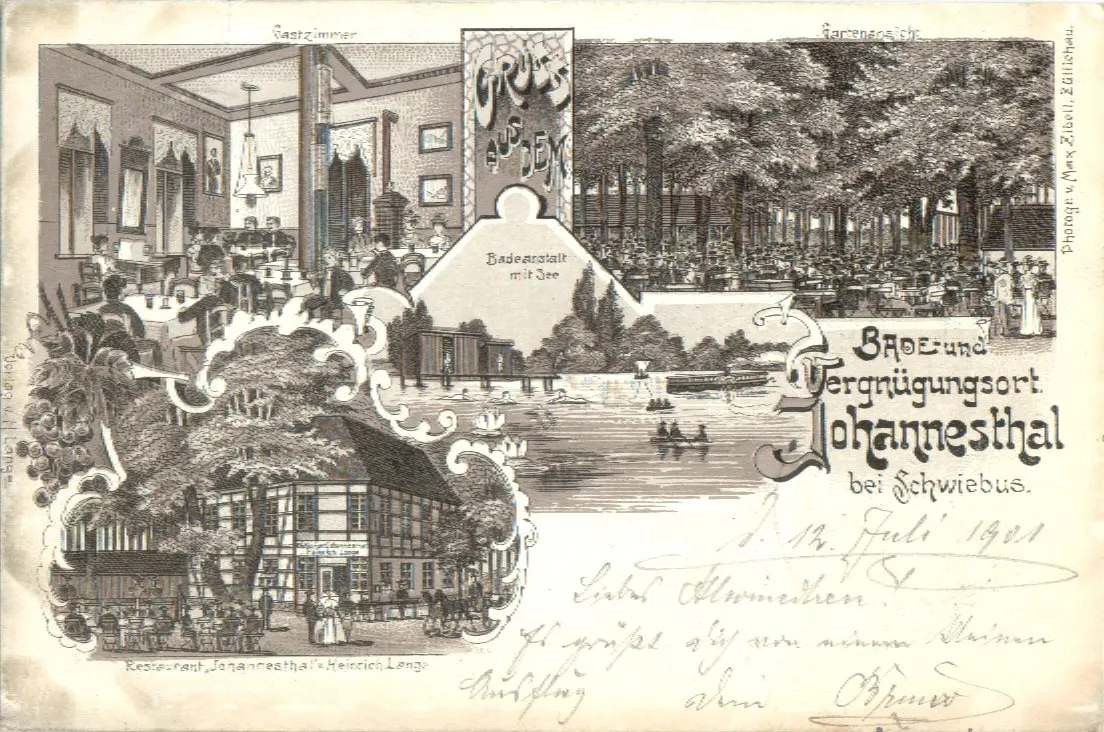 Gastzimmer
Gartenansicht
GRUSS
AUS
DEM
Badeanstalt
mit See
BADE- und
Vergnügungsort
Johannesthal
bei Schwiebus.
Photogr. v. Max Zibell, Züllichau.
Verlag v. H. Lange
Heinrich Lange
Restaurant „Johannesthal" v. Heinrich Lange
d. 12. Juli 1901
Liebes
Es grüßt dich von einem kleinen
Ausflug dein Bruno